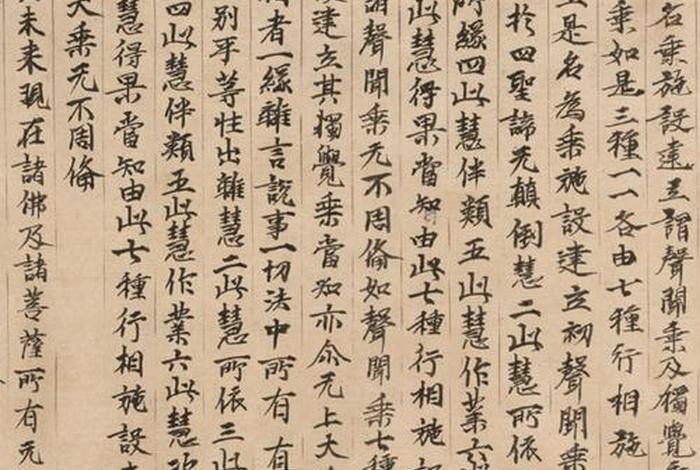 名乘施設建立謂聲聞乘及獨覺
乘如是三種一一各由七種行相施
是名為乘施設建立初聲聞乘
於四聖諦无顛倒慧二此慧所依
所緣四此慧伴類五此慧作業六
此慧得果當知由此七種行相施
謂聲聞乘无不周俻如聲聞乘七種
建立其獨覺乘當知亦尒无上大
者一緣離言說事一切法中所有
别平等性出離慧二此慧所依三此
四此慧伴類五此慧作業六此慧
慧得果當知由此七種行相施設
大乘无不周俻
未来現在諸佛及諸菩薩所有无